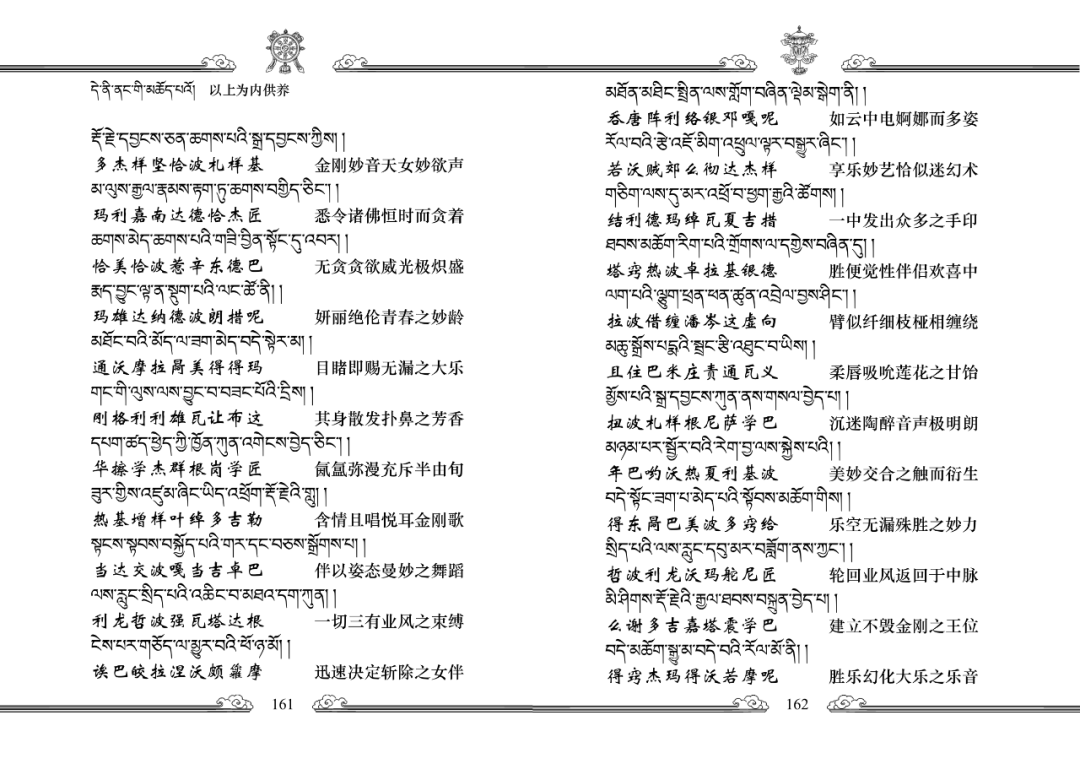 དེ་ནི་ནང་གི་མཆོད་པའོ། 以上为内供养
རྡོ་རྗེ་དབྱངས་ཅན་ཆགས་པའི་སྒྲ་དབྱངས་ཀྱིས། །
多杰样坚恰波札样基 金刚妙音天女妙欲声
མ་ལུས་རྒྱལ་རྣམས་རྟག་ཏུ་ཆགས་བགྱིད་ཅིང་། །
玛利嘉南达德恰杰匠 悉令诸佛恒时而贪着
ཆགས་མེད་ཆགས་པའི་གཟི་བྱིན་སྟོང་དུ་འབར། །
恰美恰波惹辛东德巴 无贪贪欲威光极炽盛
རྨད་བྱུང་ལྟ་ན་སྡུག་པའི་ལང་ཚོ་ནི། །
玛雄达纳德波朗措呢 妍丽绝伦青春之妙龄
མཐོང་བའི་མོད་ལ་ཟག་མེད་བདེ་སྟེར་མ། །
通沃摩拉局美得得玛 目睹即赐无漏之大乐
གང་གི་ལུས་ལས་བྱུང་བ་བཟང་པོའི་དྲིས། །
刚格利利雄瓦让布这 其身散发扑鼻之芳香
དཔག་ཚད་ཕྱེད་ཀྱི་ཁྱོན་ཀུན་འགེངས་བྱེད་ཅིང་། །
华擦学杰群根岗学匠 氤氲弥漫充斥半由旬
ཟུར་གྱིས་འཛུམ་ཞིང་ཡིད་འཕྲོག་རྡོ་རྗེའི་གླུ། །
热基增样叶绰多吉勒 含情且唱悦耳金刚歌
སྟངས་སྟབས་བསྐྱོད་པའི་གར་དང་བཅས་སྒྲོགས་པ། །
当达交波嘎当吉卓巴 伴以姿态曼妙之舞蹈
ལས་རླུང་སྲིད་པའི་འཆིང་བ་མཐའ་དག་ཀུན། །
利龙哲波强瓦塔达根 一切三有业风之束缚
ངེས་པར་གཅོད་ལ་མྱུར་བའི་ཕོ་ཉ་མོ། །
诶巴皎拉涅沃颇摩 迅速决定斩除之女伴
161
མཐོན་མཐིང་སྤྲིན་ལས་གློག་བཞིན་ལྡེམ་སྒེག་ནི། །
吞唐阵利络银邓嘎呢 如云中电婀娜而多姿
རོལ་བའི་རྩེ་འཇོ་མིག་འཕྲུལ་ལྟར་བསྒྱུར་ཞིང་། །
若沃贼郊么彻达杰样 享乐妙艺恰似迷幻术
གཅིག་ལས་དུ་མར་འཕྲོ་བ་ཕྱག་རྒྱའི་ཚོགས། །
结利德玛绰瓦夏吉措 一中发出众多之手印
ཐབས་མཆོག་རིག་པའི་གྲོགས་ལ་དགྱེས་བཞིན་དུ། །
塔窍热波卓拉基银德 胜便觉性伴侣欢喜中
ལག་པའི་ལྕུག་ཕྲན་ཕན་ཚུན་འབྲེལ་བྱས་ཤིང་། །
拉波借缠潘岑这虚向 臂似纤细枝桠相缠绕
མཆུ་སྒྲོས་པདྨའི་སྦྲང་རྩི་འཐུང་བ་ཡིས། །
且住巴米庄责通瓦义 柔唇吸吮莲花之甘饴
མྱོས་པའི་སྒྲ་དབྱངས་ཀུན་ནས་གསལ་བྱེད་པ། །
扭波札样根尼萨学巴 沉迷陶醉音声极明朗
མཉམ་པར་སྦྱོར་བའི་རེག་བྱ་ལས་སྐྱེས་པའི། །
年巴哟沃热夏利基波 美妙交合之触而衍生
བདེ་སྟོང་ཟག་པ་མེད་པའི་སྟོབས་མཆོག་གིས། །
得东局巴美波多窍给 乐空无漏殊胜之妙力
སྲིད་པའི་ལས་རླུང་དབུ་མར་བཟློག་ནས་ཀྱང་། །
哲波利龙沃玛舵尼匠 轮回业风返回于中脉
མི་ཤིགས་རྡོ་རྗེའི་རྒྱལ་ཐབས་བསྐྲུན་བྱེད་པ། །
么谢多吉嘉塔震学巴 建立不毁金刚之王位
བདེ་མཆོག་སྒྱུ་མ་བདེ་བའི་རོལ་མོ་ནི། །
得窍杰玛得沃若摩呢 胜乐幻化大乐之乐音
162